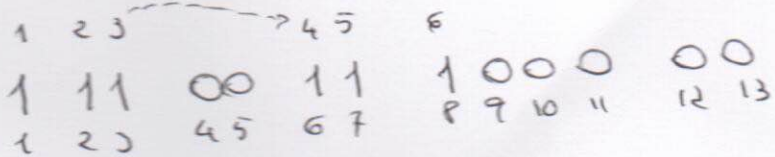 1 2 3 4 5 6
1 11 00 11 1000 00
1 2 3 4 5 6 7 8 9 10 11 12 13